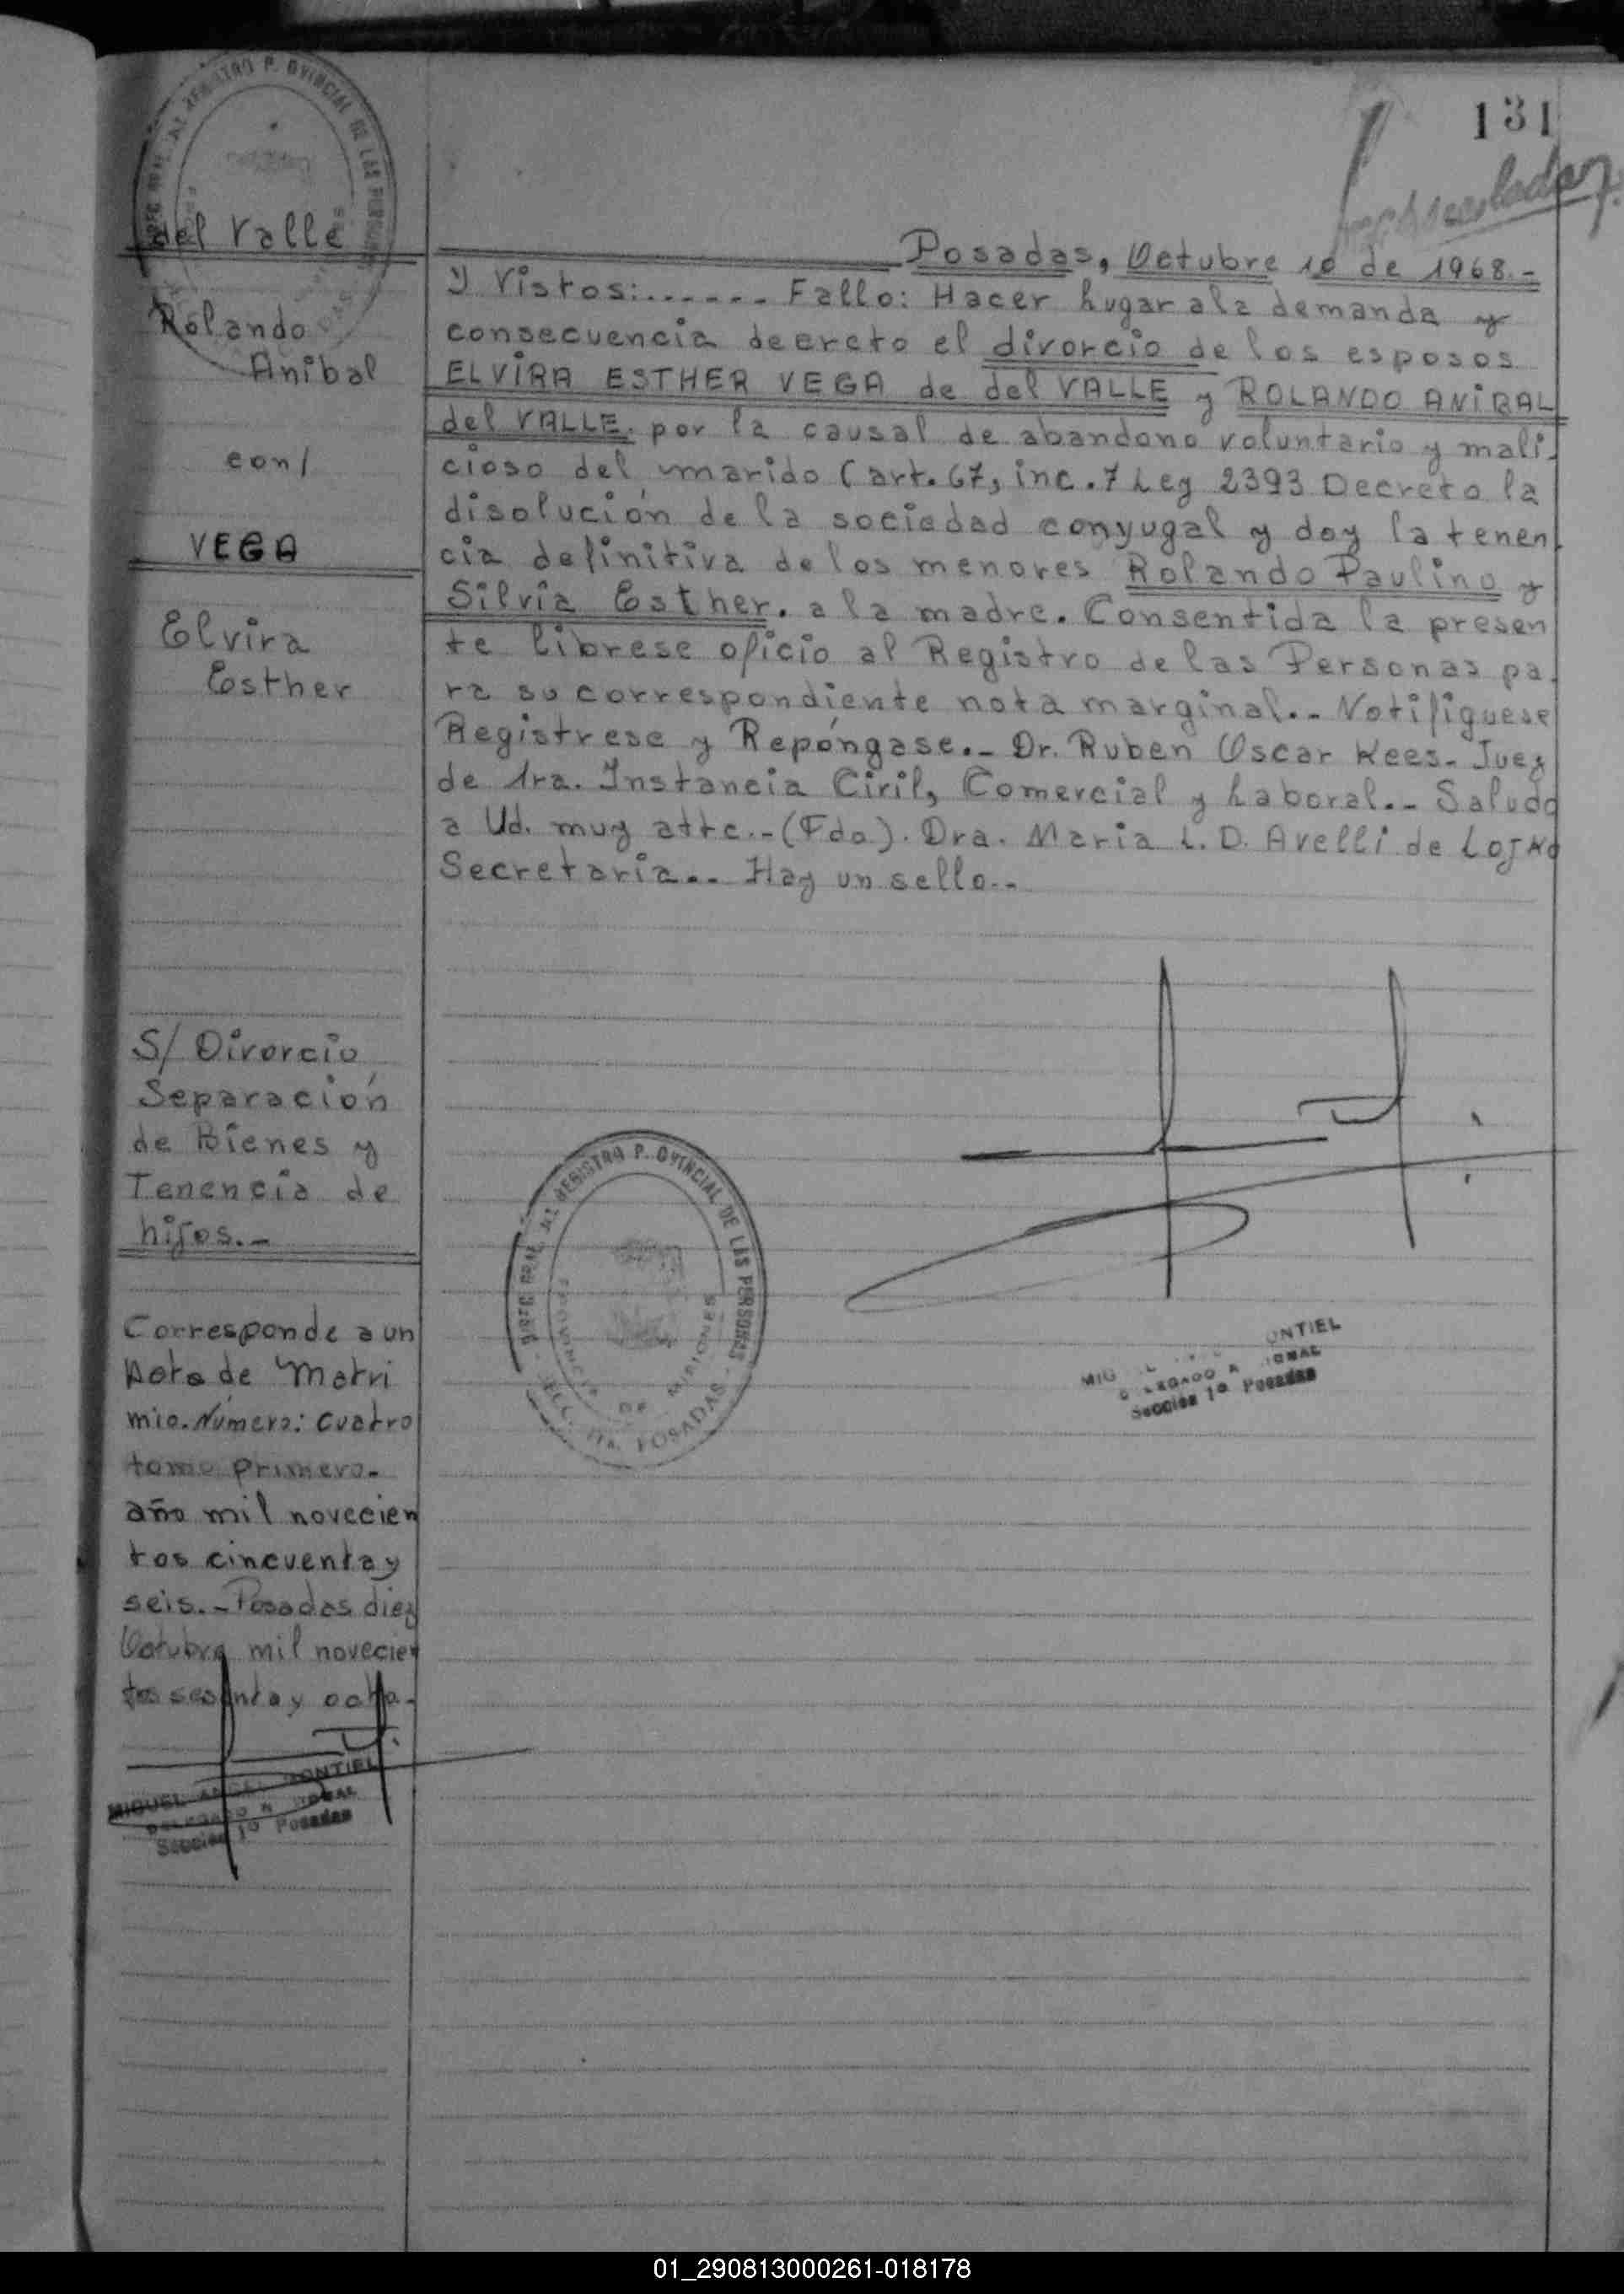 131
del Valle
Rolando
Anibal
con/
VEGA
Elvira
Esther
S/ Divorcio
Separación
de Bienes y
Tenencia de
hijos.-
Corresponde a un
Acta de Matri
mio. Número: cuatro
tomo primero.
año mil novecien
tos cincuenta y
seis.- Posadas diez
Octubre mil novecien
tos sesenta y ocho.-
MIGUEL ANGEL MONTIEL
DELEGADO
Sección 1ª Posadas
Posadas, Octubre 10 de 1968.-
Y Vistos:...... Fallo: Hacer lugar a la demanda y
consecuencia decreto el divorcio de los esposos
ELVIRA ESTHER VEGA de del VALLE y ROLANDO ANIBAL
del VALLE. por la causal de abandono voluntario y mali-
cioso del marido (art. 67, inc. 7 Ley 2393 Decreto la
disolución de la sociedad conyugal y doy la tenen-
cia definitiva de los menores Rolando Paulino y
Silvia Esther. a la madre. Consentida la presen
te librese oficio al Registro de las Personas pa-
ra su correspondiente nota marginal.- Notifiquese
Registrese y Repóngase.- Dr. Ruben Oscar Kees- Juez
de 1ra. Instancia Civil, Comercial y Laboral.- Saludo
a Ud. muy atte.-(Fdo). Dra. Maria L. D. Avelli de
Secretaria.. Hay un sello..
REGISTRO PROVINCIAL DE LAS PERSONAS
PROVINCIA DE MISIONES
SECC. 1ra. POSADAS
ONTIEL
Sección 1ª Posadas
01_290813000261-018178